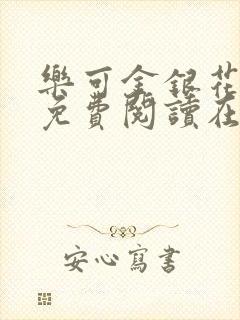 樂可金銀花
免費閱讀在
安心寫書